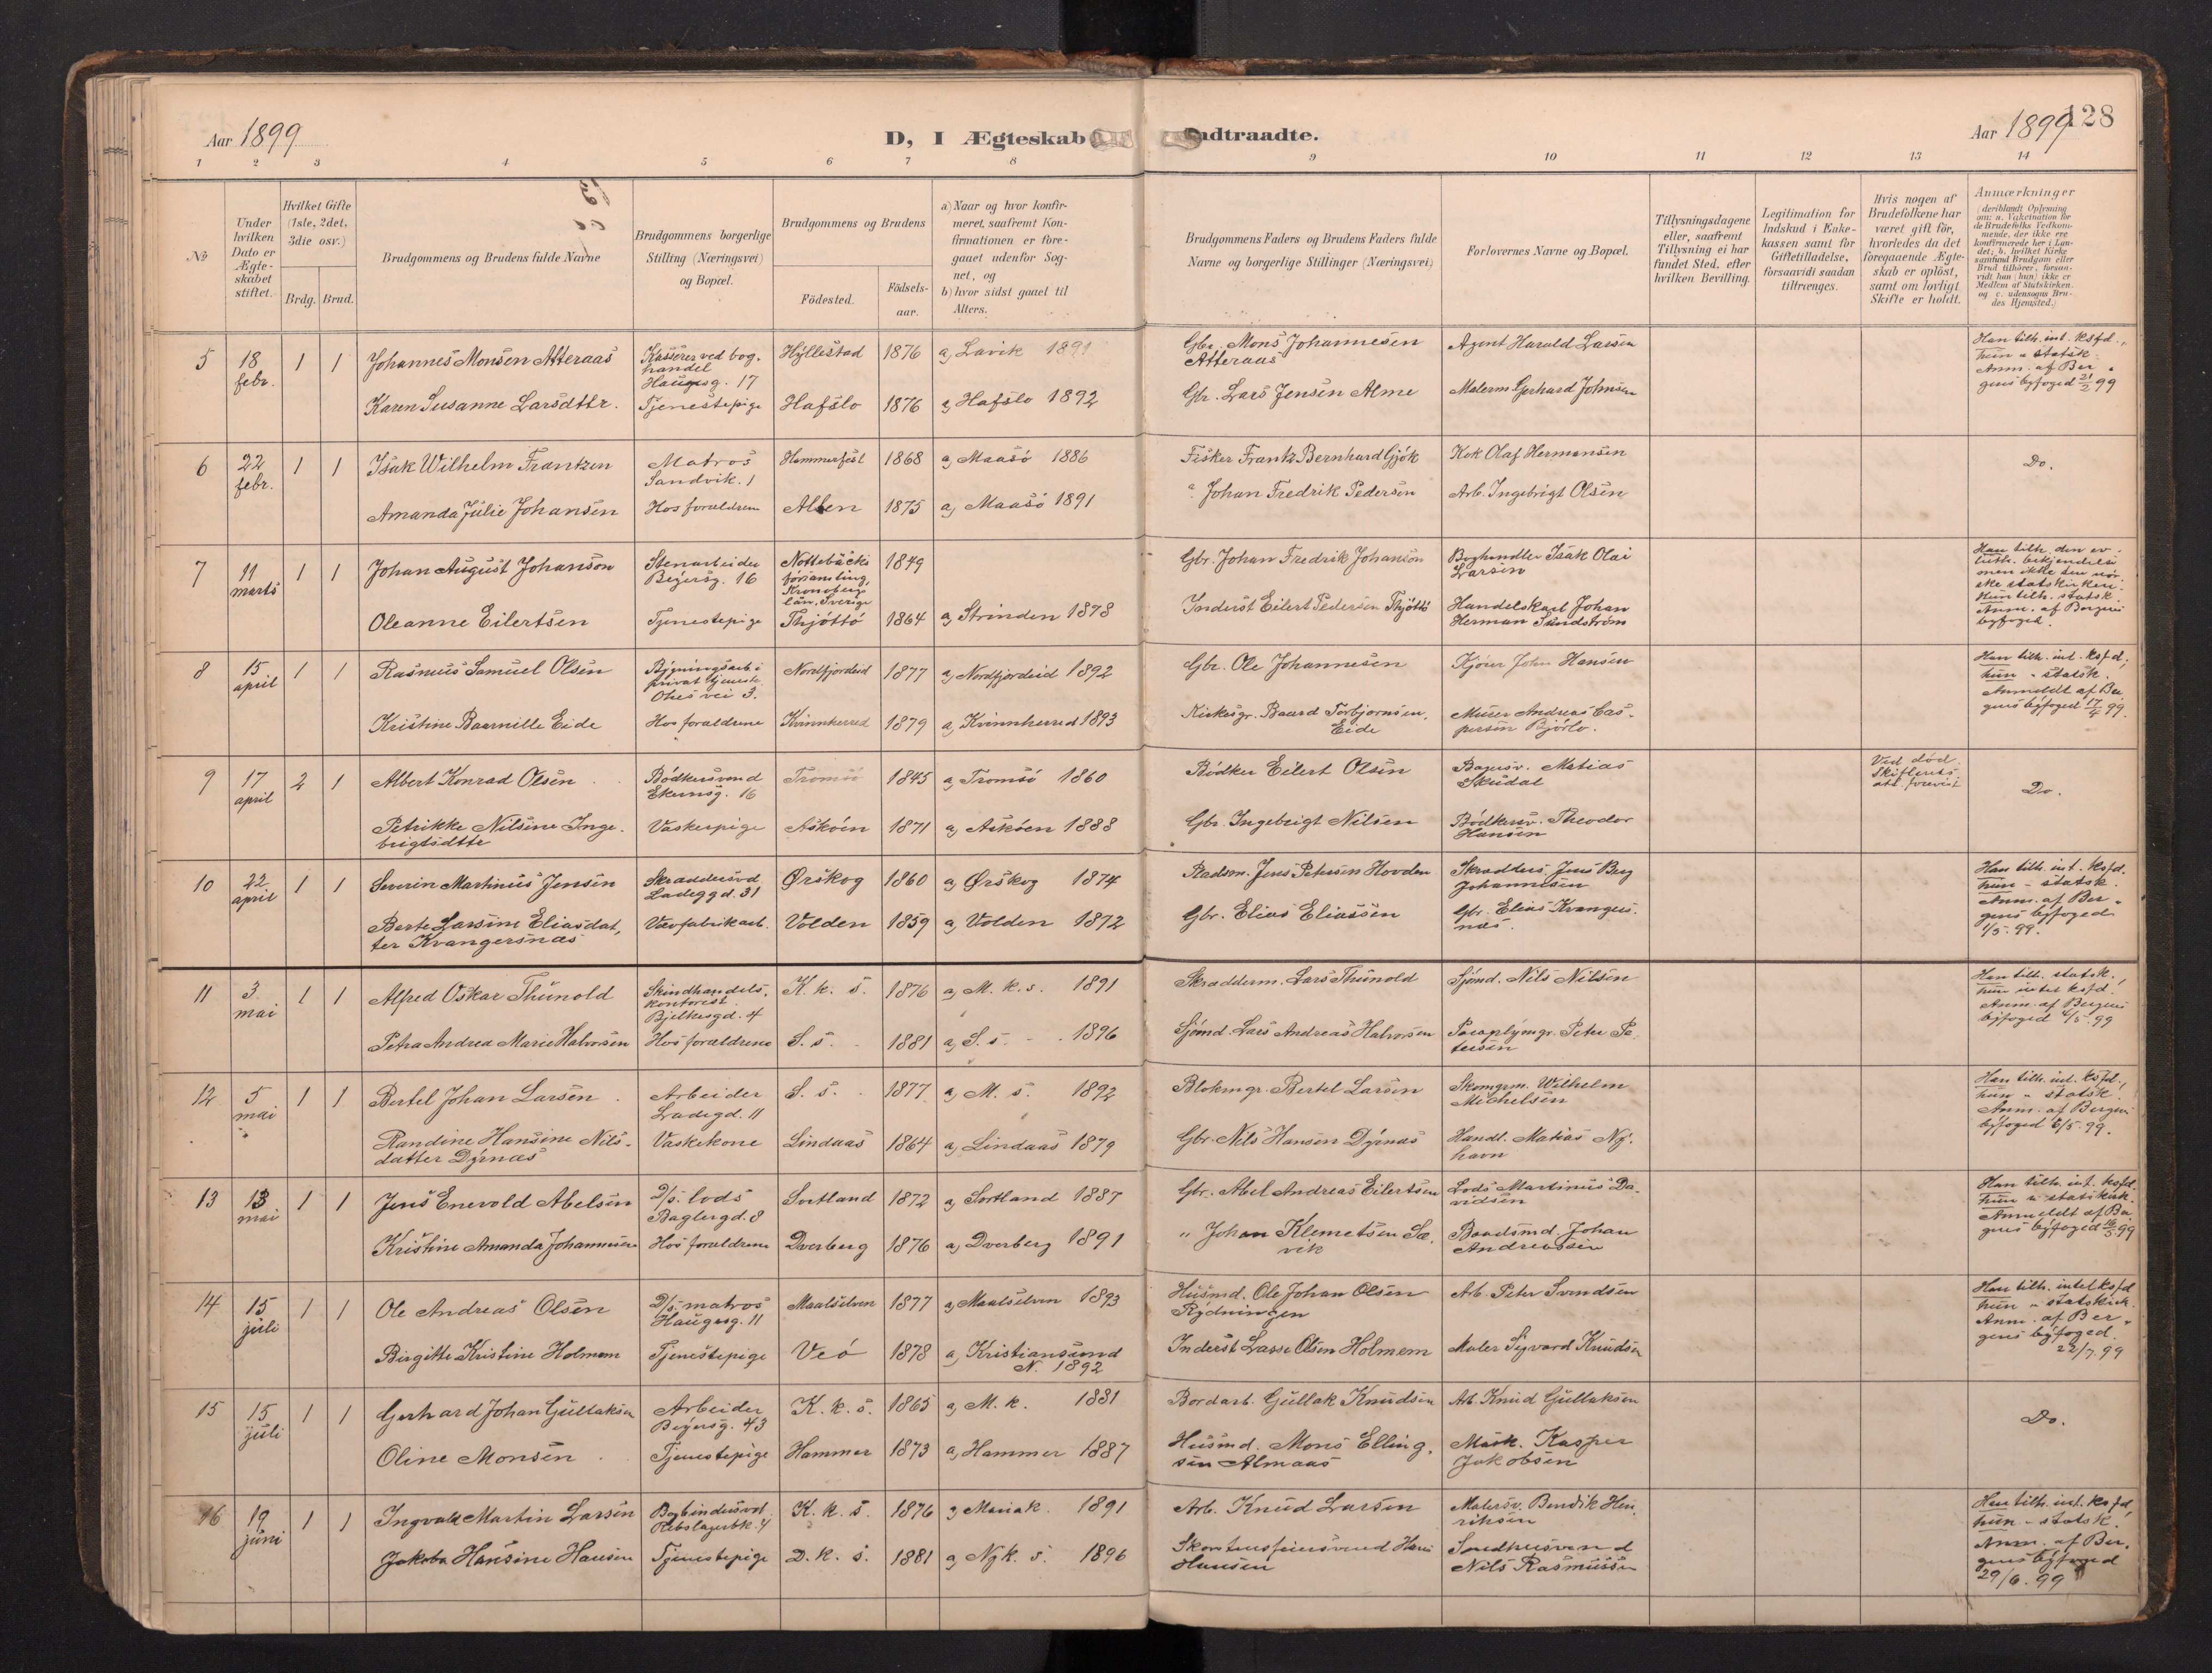 Aar 1899
D, I Ægteskab
ndtraadte.
Aar 1899
128
1 2 3 4 5 6 7 8 9 10 11 12 13 14
No
Under hvilken Dato er Ægteskabet stiftet.
Hvilket Gifte (1ste, 2det, 3die osv.)
Brdg. Brud.
Brudgommens og Brudens fulde Navne
Brudgommens borgerlige Stilling (Næringsvei) og Bopæl.
Brudgommens og Brudens
Födested.
Födsels-aar.
a) Naar og hvor konfirmeret, saafremt Konfirmationen er foregaaet udenfor Sognet, og
b) hvor sidst gaaet til Alters.
Brudgommens Faders og Brudens Faders fulde Navne og borgerlige Stillinger (Næringsvei)
Forlovernes Navne og Bopæl.
Tillysningsdagene eller, saafremt Tillysning ei har fundet Sted, efter hvilken Bevilling.
Legitimation for Indskud i Enkekassen samt for Giftetilladelse, forsaavidt saadan tiltrænges.
Hvis nogen af Brudefolkene har været gift för, hvorledes da det foregaaende Ægteskab er oplöst, samt om lovligt Skifte er holdt.
Anmærkninger
(deriblandt Oplysning om: a. Vakcination for de Brudefolks Vedkommende, der ikke ere konfirmerede her i Landet; b. hvilket Kirkesamfund Brudgom eller Brud tilhörer, forsaavidt han (hun) ikke er Medlem af Statskirken, og c. udensogns Brudes Hjemsted.)
5 18 febr. 1 1 Johannes Monsen Atteraas Kasserer ved boghandel Haugesg. 17 Hyllestad 1876 a, Lavik 1891 Gbr. Mons Johannesen Atteraas Agent Harald Larsen
Han tilh. int. ksfd., hun " statsk. Anm. af Bergens byfoged 21/2 99
Karen Susanne Larsdttr. Tjenestepige Hafslo 1876 a, Hafslo 1892 Gbr. Lars Jensen Alme Malerm Gerhard Johnsen
6 22 febr. 1 1 Isak Wilhelm Frantzen Matros Sandvik. 1 Hammerfest 1868 a, Maasö 1886 Fisker Frantz Bernhard Gjök Kok Olaf Hermansen Do.
Amanda Julie Johansen Hos forældrene Alten 1875 a, Maasö 1891 " Johan Fredrik Pedersen Arb. Ingebrigt Olsen
7 11 marts 1 1 Johan August Johanson Stenarbeider Beyersg. 16 Nottebäcks församling, Kronobergs län, Sverige 1849 Gbr. Johan Fredrik Johanson Boghandler Isak Olai Larsen
Han tilh. den ev. luth. bekjendelse men ikke den norske statskirken. Hun tilh. statsk Anm. af Bergens byfoged.
Oleanne Eilertsen Tjenestepige Thjöttö 1864 a, Strinden 1878 Inderst Eilert Pedersen Thjöttö Handelskarl Johan Herman Sundström
8 15 april 1 1 Rasmus Samuel Olsen Bygningsarb. i privat tjeneste Nordfjordeid 1877 a, Nordfjordeid 1892 Gbr. Ole Johannesen Kjörer John Hansen
Han tilh. int. ksfd; hun " statsk. Anmeldt af Bergens byfoged 17/4 99.
Kristine Baarnille Eide Hos forældrene Kvinnherred 1879 a, Kvinnherred 1893 Kirkesgr. Baard Torbjornsen Eide Murer Andreas Caspersen Björlo.
9 17 april 2 1 Albert Konrad Olsen Bödkersvend 16 Tromsö 1845 a, Tromsö 1860 Bödker Eilert Olsen Bagersv. Matias Skudal Ved död. Skifterets att. forevist Do.
Petrikke Nilsine Ingebrigtsdttr Vaskerpige Asköen 1871 a, Asköen 1888 Gbr. Ingebrigt Nilsen Bödkersv. Theodor Hansen
10 22 april 1 1 Severin Martinus Jensen Skræddersvd. Ladeggd. 31 Ørskog 1860 a, Ørskog 1874 Stadsm. Jens Petersen Hovden Skrædders. Jens Berg Johannesen
Han tilh. int. ksfd. hun - statsk. Anm. af Bergens byfoged 1/5. 99.
Berte Larsine Eliasdatter Kvangersnæs Vævfabrikarb. Volden 1859 a, Volden 1872 Gbr. Elias Eliassen Gbr. Elias Kvangersnæs.
11 3 mai 1 1 Alfred Oskar Thunold Skindhandels. kontorist. Bjelkesgd. 4 K. k. s. 1876 a, M. k. s. 1891 Skrædderm. Lars Thunold Sjömd. Nils Nilsen
Han tilh. statsk.! hun intet ksfd.! Anm. af Bergens byfoged 4/5. 99
Petra Andrea Marie Halvorsen Hos forældrene S. s. 1881 a, S. s. 1896 Sjömd. Lars Andreas Halvorsen Paraplymgr. Peter Petersen
12 5 mai 1 1 Bertel Johan Larsen Arbeider Ladegd. 11 S. s. 1877 a, M. s. 1892 Blokmgr. Bertel Larsen Skomgrm. Wilhelm Michelsen
Han tilh. int. ksfd., hun " statsk. Anm. af Bergens byfoged 6/5. 99.
Randine Hansine Nilsdatter Dyrnæs Vaskekone Lindaas 1864 a, Lindaas 1879 Gbr. Nils Hansen Dyrnæs Handl. Matias Nyhavn
13 13 mai 1 1 Jens Enevold Abelsen D/s. lods Baglergd. 8 Sortland 1872 a, Sortland 1887 Gbr. Abel Andreas Eilertsen Lods Martinus Davidsen
Han tilh. int. ksfd. hun " statskirk. Anmeldt af Bergens byfoged 16/5 99
Kristine Amanda Johannesen Hos forældrene Dverberg 1876 a, Dverberg 1891 " Johan Klemetsen Sævik Baadsmd. Johan Andreassen
14 15 juli 1 1 Ole Andreas Olsen D/s. matros Haugesg. 11 Maalselven 1877 a, Maalselven 1893 Husmd. Ole Johan Olsen Rydningen Arb. Peter Svendsen
Han tilh. intet ksfd hun " statskirk. Anm. af Bergens byfoged. 22/7. 99
Birgitte Kristine Holmem Tjenestepige Veö 1878 a, Kristiansund N. 1892 Inderst Lasse Olsen Holmem Maler Sigvard Knudsen
15 15 juli 1 1 Gerhard Johan Gullaksen Arbeider Beyersg. 43 K. k. s. 1865 a, M. k. 1881 Bordarb. Gullak Knudsen Arb. Knud Gullaksen Do.
Oline Monsen Tjenestepige Hammer 1873 a, Hammer 1887 Husmd. Mons Ellingsen Almaas Mask. Kasper Jakobsen
16 19 juni 1 1 Ingvald Martin Larsen Bogbindersvd. Rebslagerbk. 4 K. k. s. 1876 a, Mariak. 1891 Arb. Knud Larsen Malersv. Bendik Henriksen
Han tilh. int. ksfd, hun - statsk. Anm. af Bergens byfoged 29/6. 99
Jakoba Hansine Hansen Tjenestepige D. k. s. 1881 a, Nyk. s. 1896 Skorstensfeiersvend Hans Hansen Smedsvend Nils Rasmussen